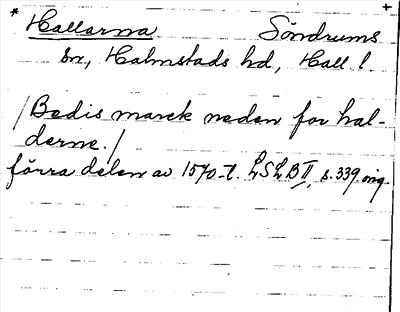 * Hallarna Söndrums +
sn, Halmstads hd, Hall. l.
/Bedis marck neden for hal-
derne./
förra delen av 1570-t. LSLB II, s. 339 orig.